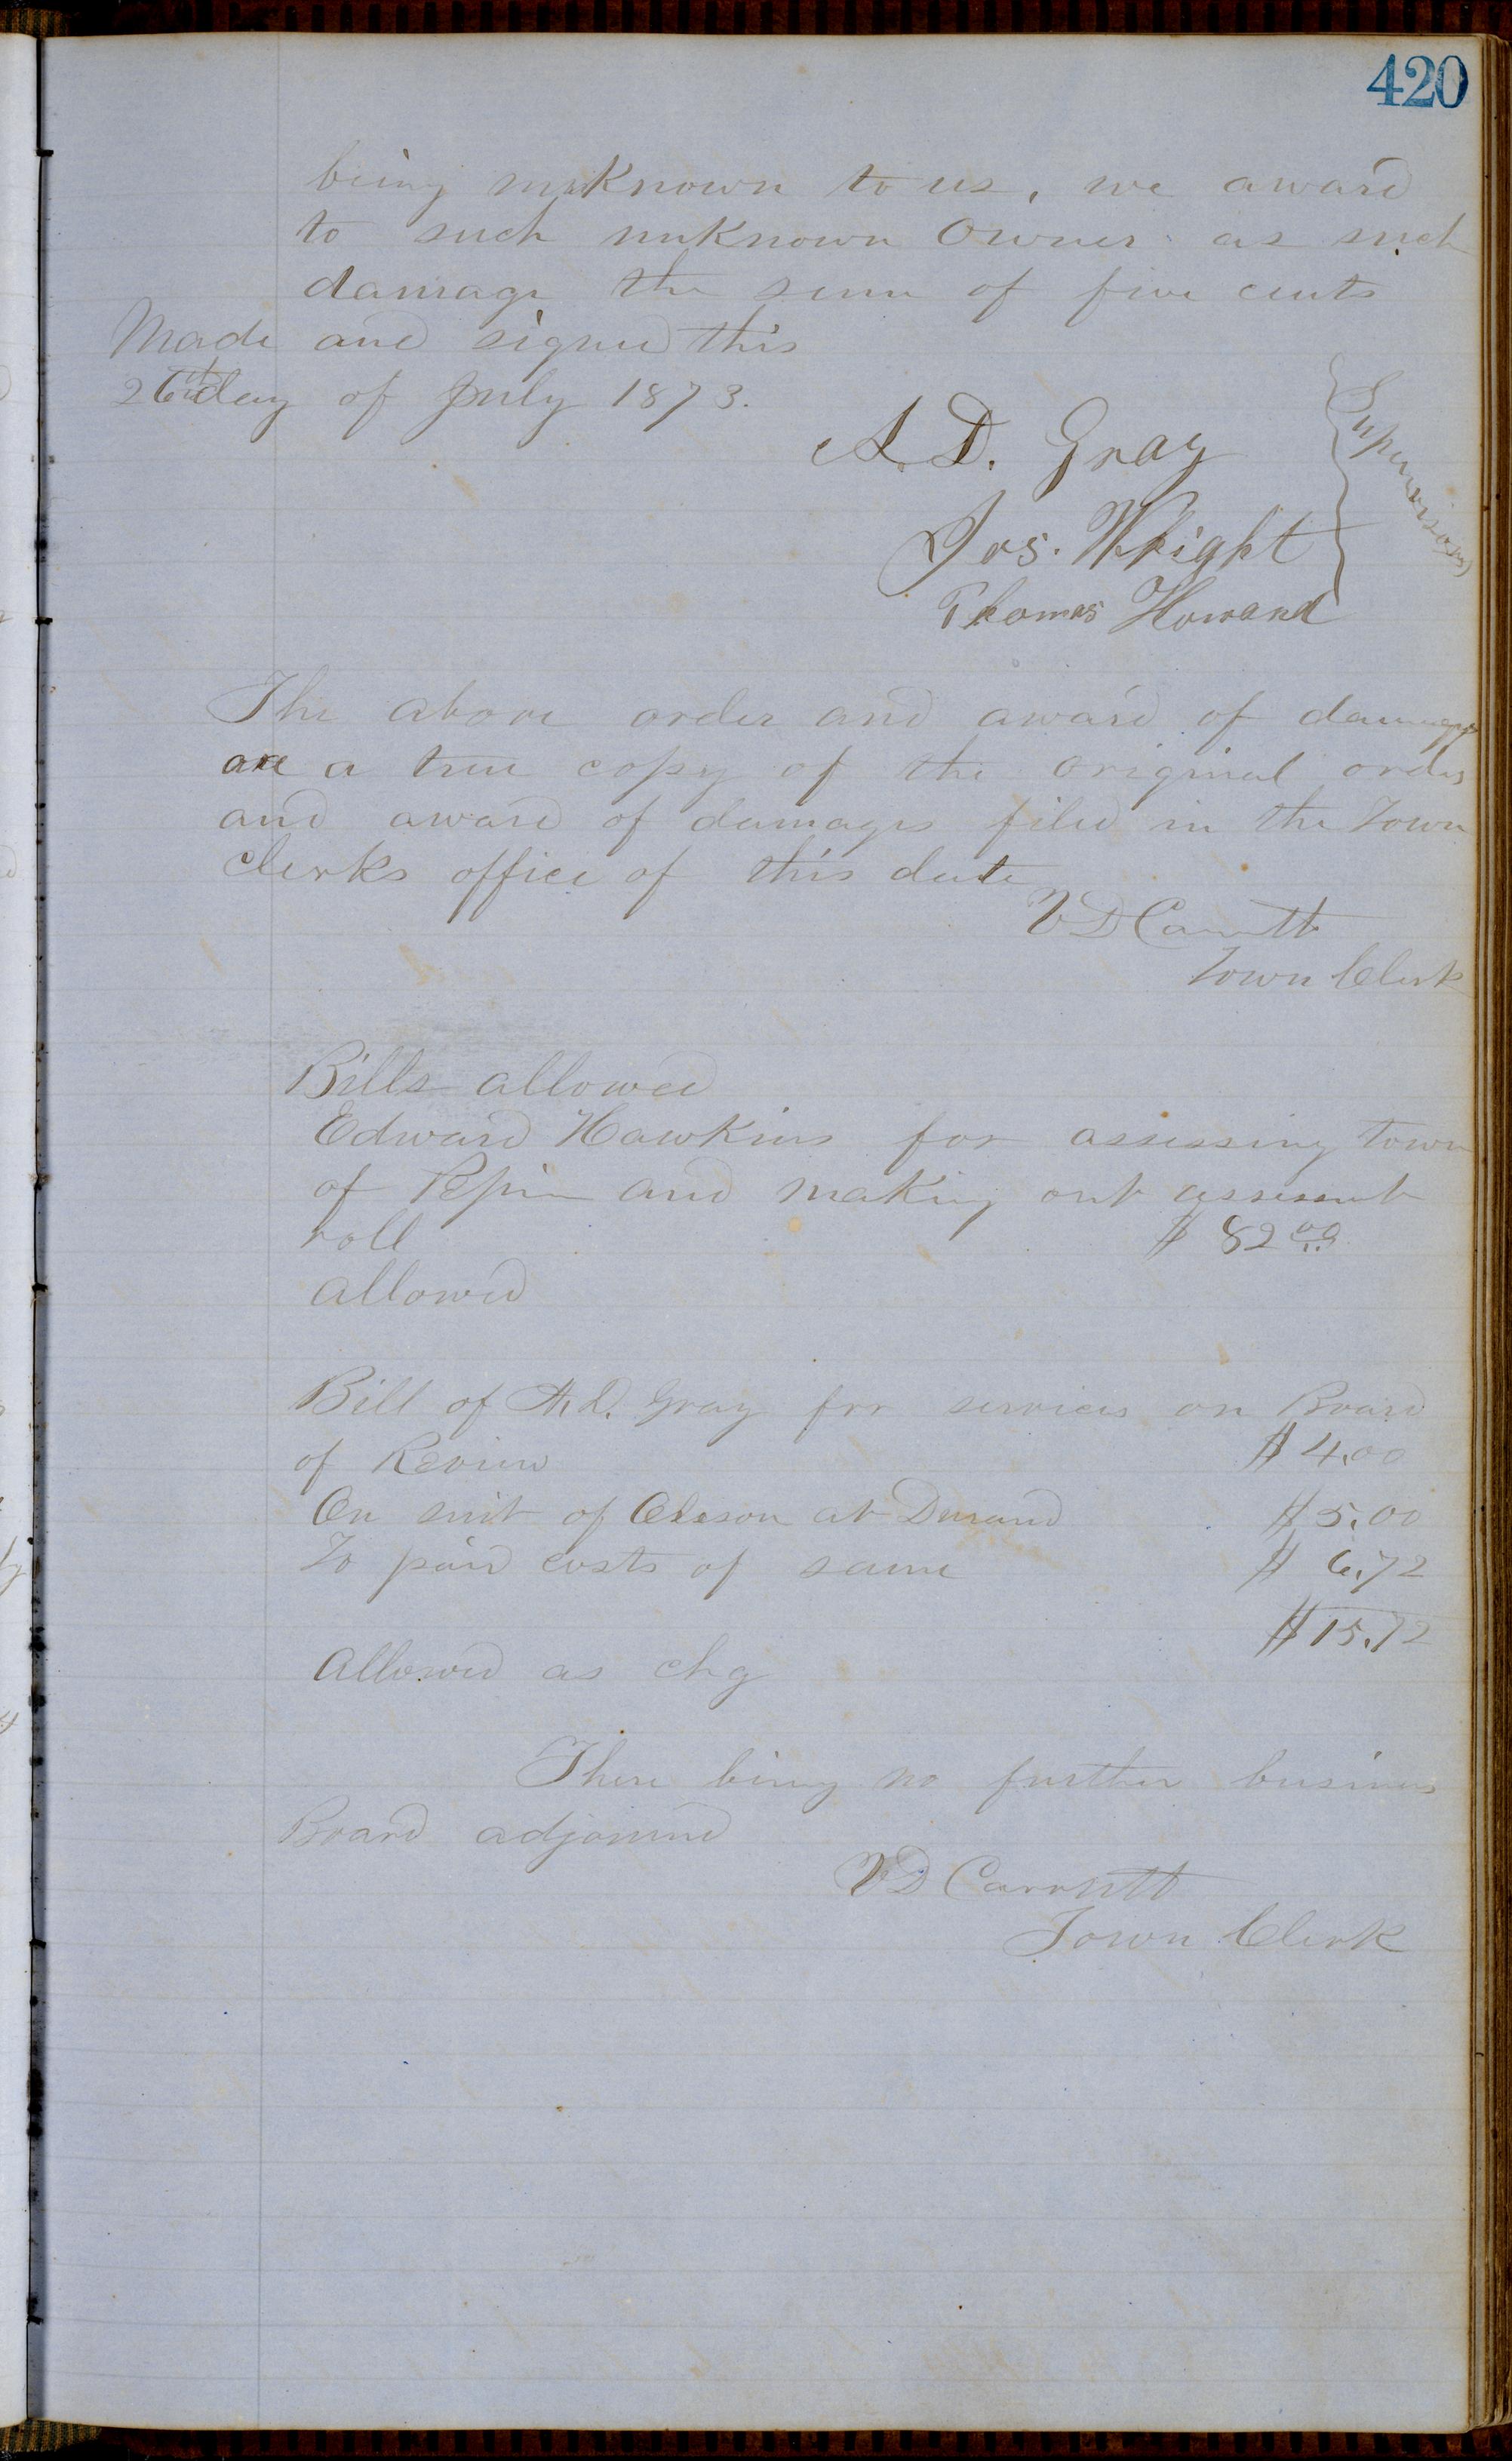 420
being unknown to us, we award
to such unknown Owner as such
damage the sum of five cents
Made and signed this
26th day of July 1873.
A. D. Gray
Jos. Wright
Thomas Howard
Supervisors
The above order and award of damages
are a true copy of the original order
and award of damages filed in the Town
Clerks office of this date
V D Carruth
Town Clerk
Bills allowed
Edward Hawkins for assessing Town
of Pepin and making out assessment
roll $ 82 00
allowed
Bill of A. D. Gray for services on Board
of Review $ 4.00
On suit of Oleson at Durand $ 5.00
To paid costs of same $ 6.72
$ 15.72
Allowed as chg
There being no further business
Board adjourned
V D Carruth
Town Clerk